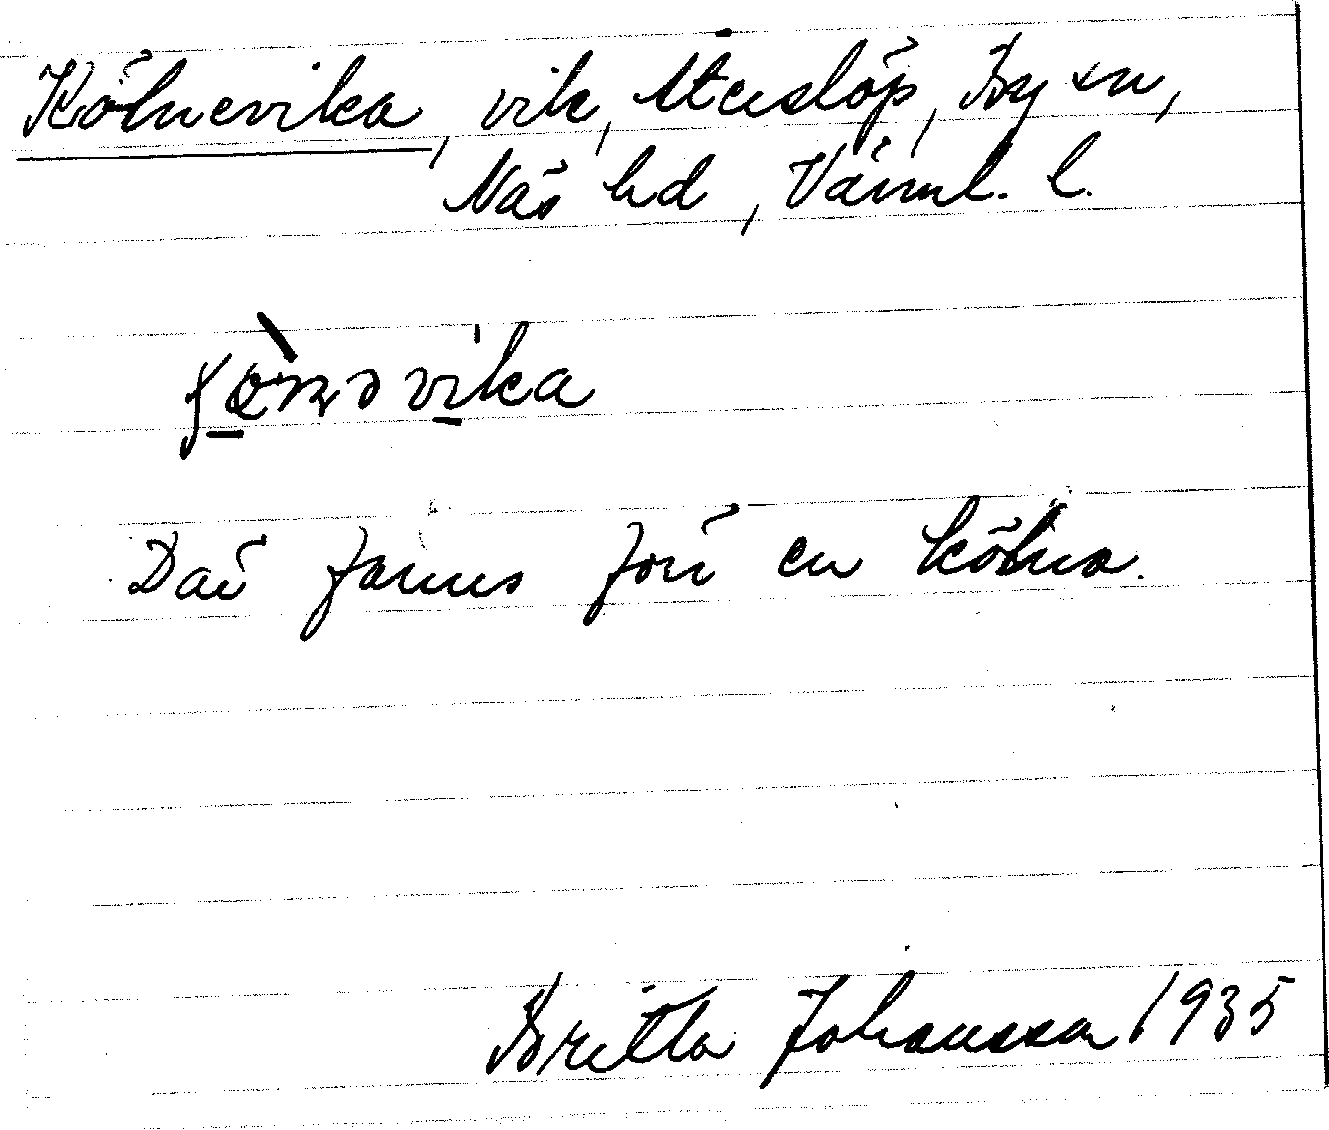 Kölnevika, vik, Stenslöp, By sn,
Näs hd, Värml. l.
Där fanns förr en kölna.
Britta Johansson 1935